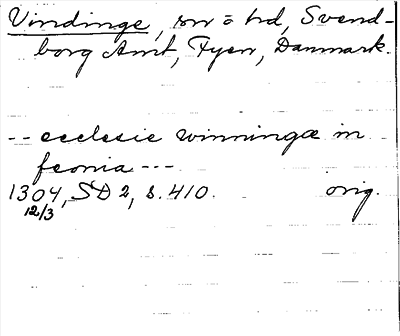 Vindinge, sn o hd, Svend-
borg Amt, Fyen, Danmark.
-- ecclesie winninge in
feonia ---
1304, SD 2, s. 410. orig.
12/3